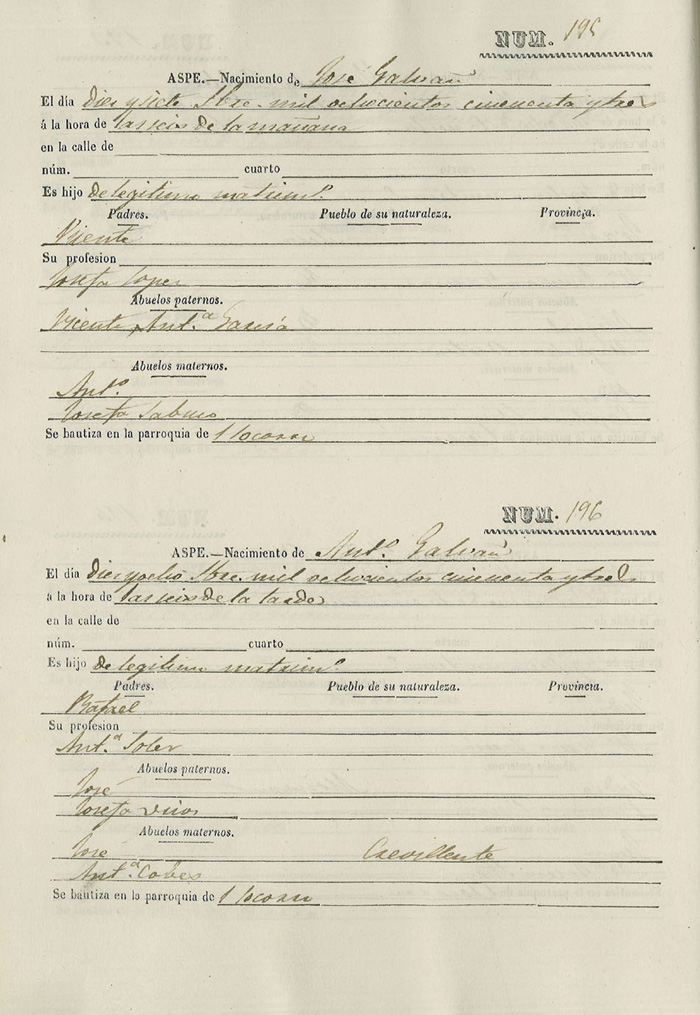 NUM. 195
ASPE.—Nacimiento de José Galvañ
El día diez y siete Sbre. mil ochocientos cincuenta y tres
á la hora de las seis de la mañana
en la calle de
núm. cuarto
Es hijo de legitimo matrim.º
Padres. Pueblo de su naturaleza. Provincia.
Vicente
Su profesion
Josefa Lopez
Abuelos paternos.
Vicente, Ant.ª García
Abuelos maternos.
Ant.º
Josefa
Se bautiza en la parroquia de
NUM. 196
ASPE.—Nacimiento de Ant.º Galvañ
El día diez y ocho Sbre. mil ochocientos cincuenta y tres
á la hora de las seis de la tarde
en la calle de
núm. cuarto
Es hijo de legitimo matrim.º
Padres. Pueblo de su naturaleza. Provincia.
Rafael
Su profesion
Ant.ª Soler
Abuelos paternos.
José
Josefa
Abuelos maternos.
José Crevillente
Ant.ª
Se bautiza en la parroquia de